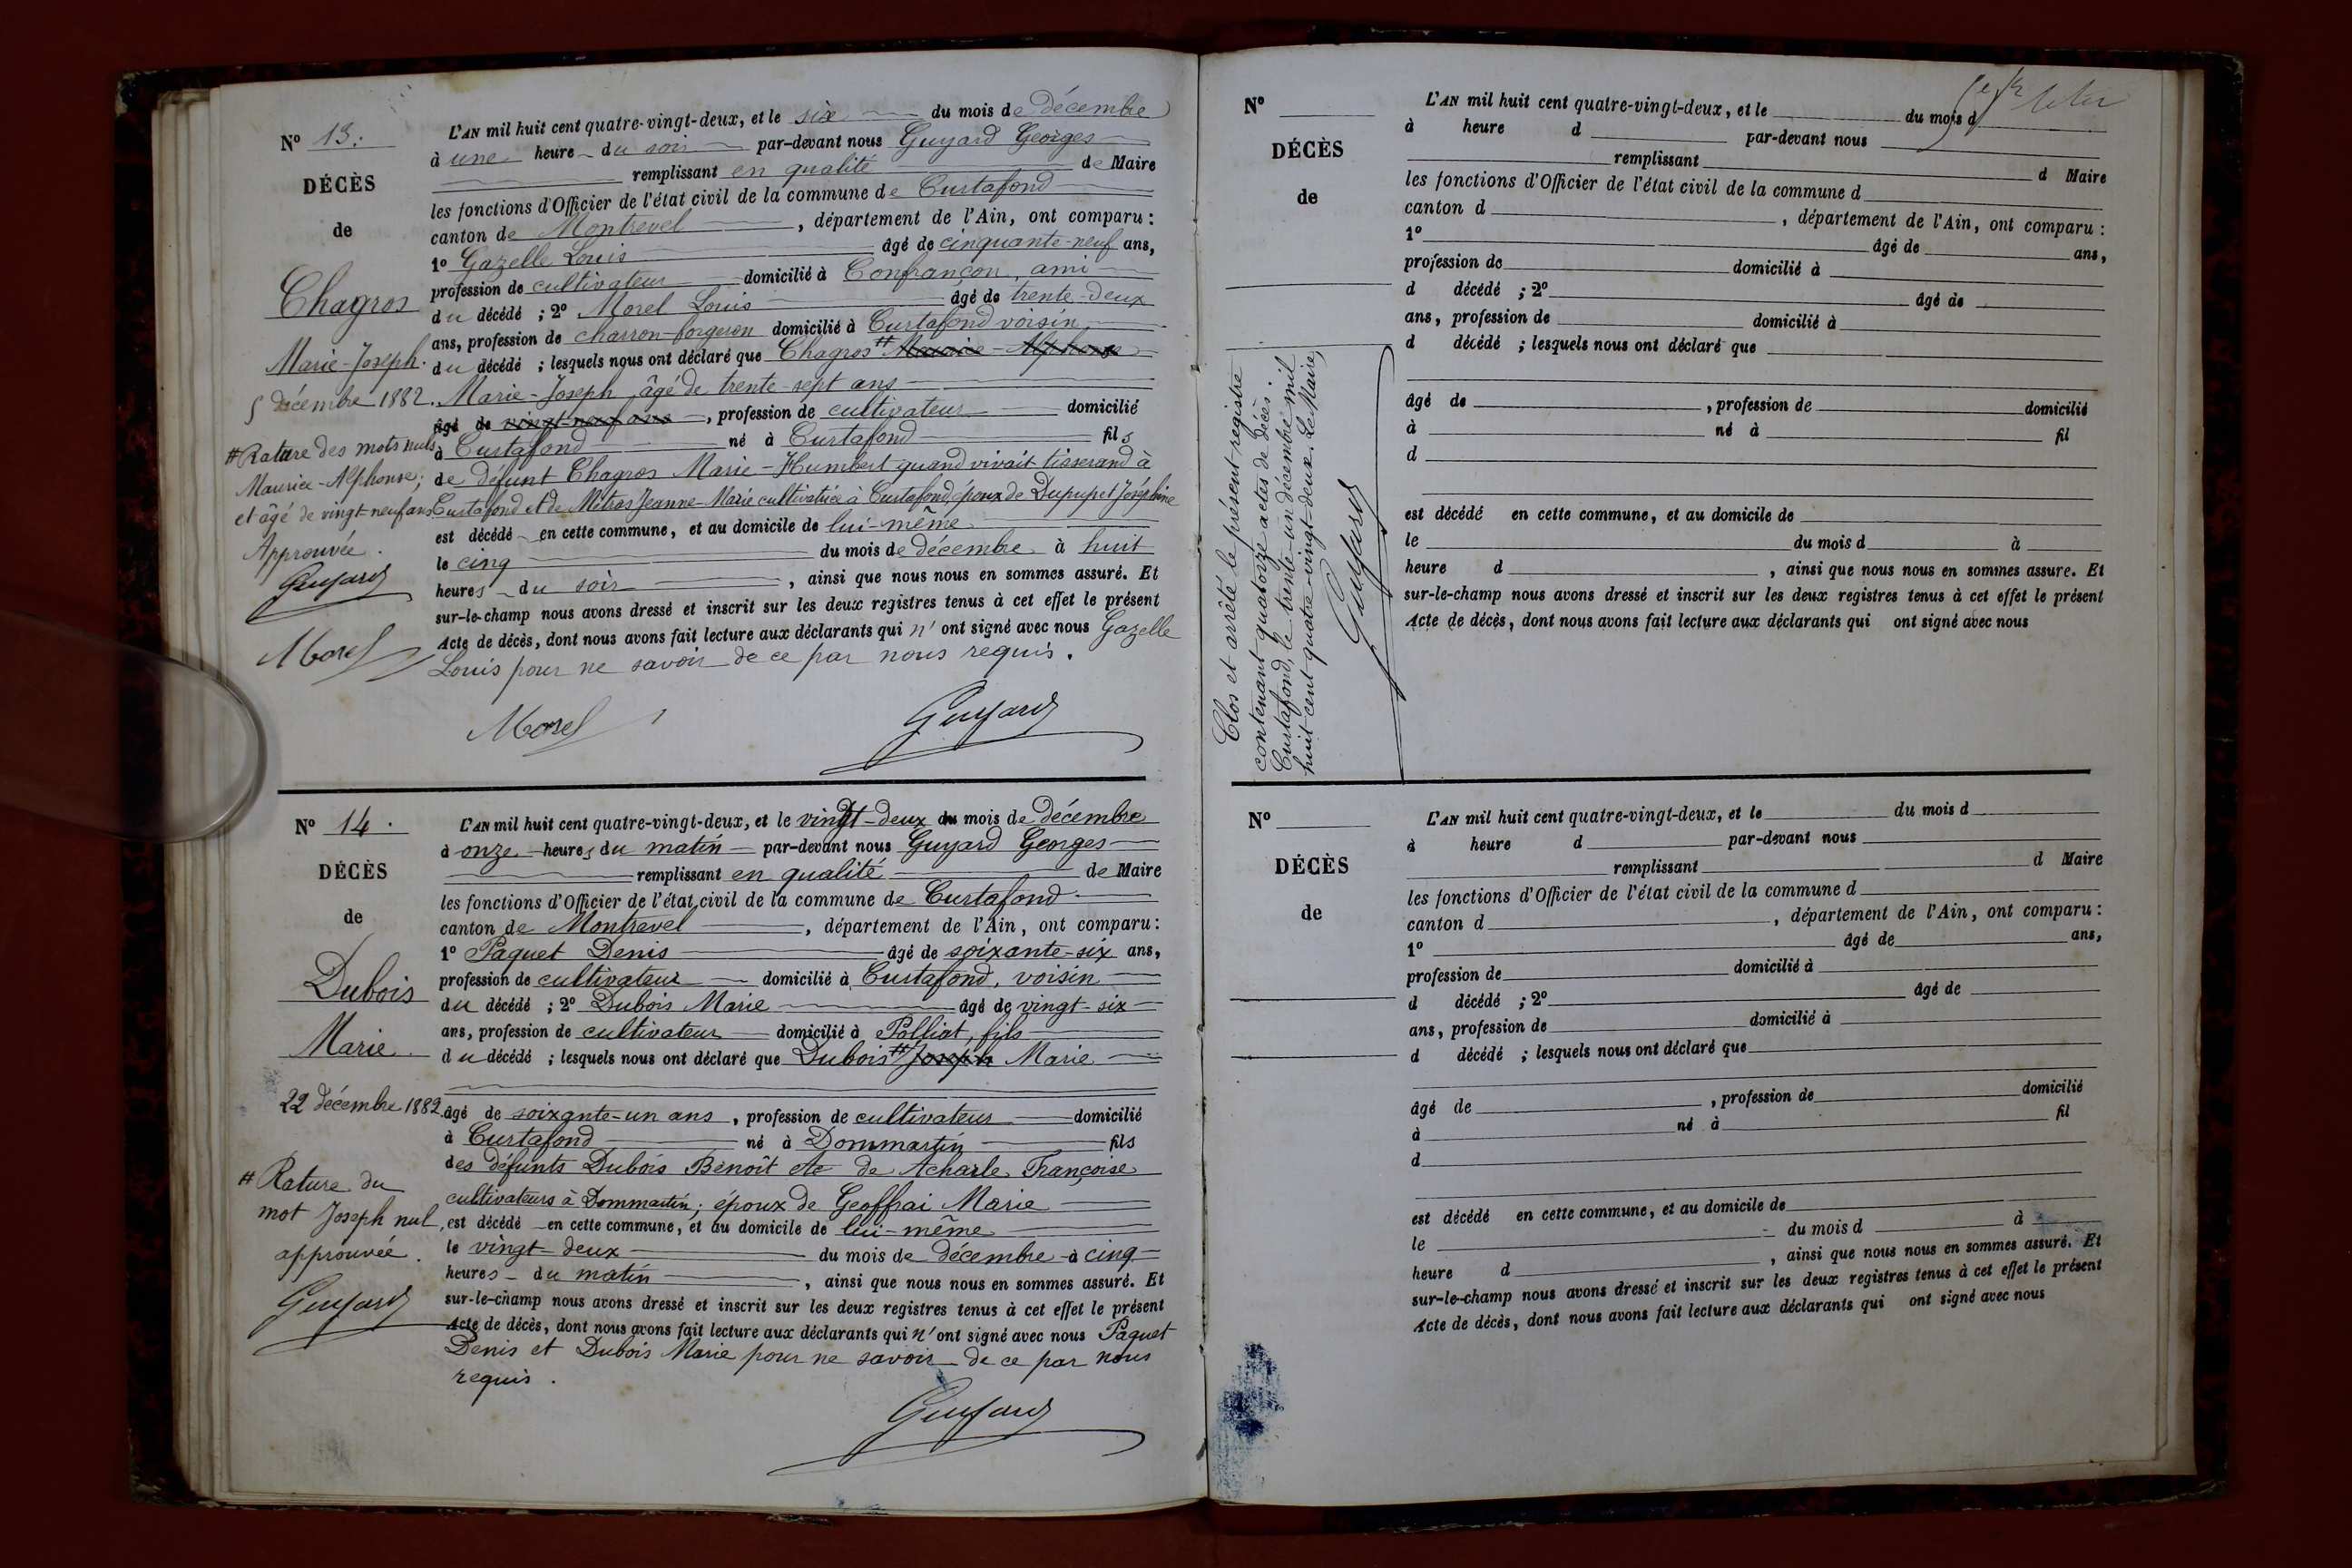 N° 13.
DÉCÈS
de
Chagros
Marie-Joseph.
5 décembre 1882.
# Rature des mots nuls
Maurice-Alphonse;
et âgé de vingt-neuf ans
Approuvée.
Guyard
Morel
L'AN mil huit cent quatre-vingt-deux, et le six du mois de décembre
à une heure du soir par-devant nous Guyard Georges
remplissant en qualité de Maire
les fonctions d'Officier de l'état civil de la commune de Curtafond
canton de Montrevel, département de l'Ain, ont comparu :
1° Gazelle Louis âgé de cinquante-neuf ans,
profession de cultivateur domicilié à Confrançon, ami
du décédé ; 2° Morel Louis âgé de trente-deux
ans, profession de charron-forgeron domicilié à Curtafond voisin
du décédé ; lesquels nous ont déclaré que Chagros # Maurice-Alphonse
Marie-Joseph âgé de trente-sept ans
âgé de vingt-neuf ans, profession de cultivateur domicilié
à Curtafond né à Curtafond fils
de défunt Chagros Marie-Humbert quand vivait tisserand à
Curtafond et de Mitras Jeanne-Marie cultivatrice à Curtafond époux de Dupupet Joséphine
est décédé en cette commune, et au domicile de lui-même
le cinq du mois de décembre à huit
heures du soir, ainsi que nous nous en sommes assuré. Et
sur-le-champ nous avons dressé et inscrit sur les deux registres tenus à cet effet le présent
Acte de décès, dont nous avons fait lecture aux déclarants qui n'ont signé avec nous Gazelle
Louis pour ne savoir de ce par nous requis.
Morel Guyard
N° 14.
DÉCÈS
de
Dubois
Marie
22 décembre 1882.
# Rature du
mot Joseph nul,
approuvée.
Guyard
L'AN mil huit cent quatre-vingt-deux, et le vingt-deux du mois de décembre
à onze heures du matin par-devant nous Guyard Georges
remplissant en qualité de Maire
les fonctions d'Officier de l'état civil de la commune de Curtafond
canton de Montrevel, département de l'Ain, ont comparu :
1° Paquet Denis âgé de soixante-six ans,
profession de cultivateur domicilié à Curtafond, voisin
du décédé ; 2° Dubois Marie âgé de vingt-six
ans, profession de cultivateur domicilié à Polliat, fils
du décédé ; lesquels nous ont déclaré que Dubois # Joseph Marie
âgé de soixante-un ans, profession de cultivateur domicilié
à Curtafond né à Dommartin fils
des défunts Dubois Benoît et de Acharle Françoise
cultivateurs à Dommartin; époux de Geoffrai Marie
est décédé en cette commune, et au domicile de lui-même
le vingt-deux du mois de décembre à cinq
heures du matin, ainsi que nous nous en sommes assuré. Et
sur-le-champ nous avons dressé et inscrit sur les deux registres tenus à cet effet le présent
Acte de décès, dont nous avons fait lecture aux déclarants qui n'ont signé avec nous Paquet
Denis et Dubois Marie pour ne savoir de ce par nous
requis.
Guyard
N°
DÉCÈS
de
Clos et arrêté le présent registre
contenant quatorze actes de décès.
Curtafond, le trente-un décembre mil
huit cent quatre-vingt-deux. Le Maire,
Guyard
L'AN mil huit cent quatre-vingt-deux, et le du mois d
à heure d par-devant nous
remplissant d Maire
les fonctions d'Officier de l'état civil de la commune d
canton d , département de l'Ain, ont comparu :
1° âgé de ans,
profession de domicilié à
d décédé ; 2° âgé de
ans, profession de domicilié à
d décédé ; lesquels nous ont déclaré que
âgé de , profession de domicilié
à né à fil
d
est décédé en cette commune, et au domicile de
le du mois d à
heure d , ainsi que nous nous en sommes assuré. Et
sur-le-champ nous avons dressé et inscrit sur les deux registres tenus à cet effet le présent
Acte de décès, dont nous avons fait lecture aux déclarants qui ont signé avec nous
N°
DÉCÈS
de
L'AN mil huit cent quatre-vingt-deux, et le du mois d
à heure d par-devant nous
remplissant d Maire
les fonctions d'Officier de l'état civil de la commune d
canton d , département de l'Ain, ont comparu :
1° âgé de ans,
profession de domicilié à
d décédé ; 2° âgé de
ans, profession de domicilié à
d décédé ; lesquels nous ont déclaré que
âgé de , profession de domicilié
à né à fil
d
est décédé en cette commune, et au domicile de
le du mois d à
heure d , ainsi que nous nous en sommes assuré. Et
sur-le-champ nous avons dressé et inscrit sur les deux registres tenus à cet effet le présent
Acte de décès, dont nous avons fait lecture aux déclarants qui ont signé avec nous